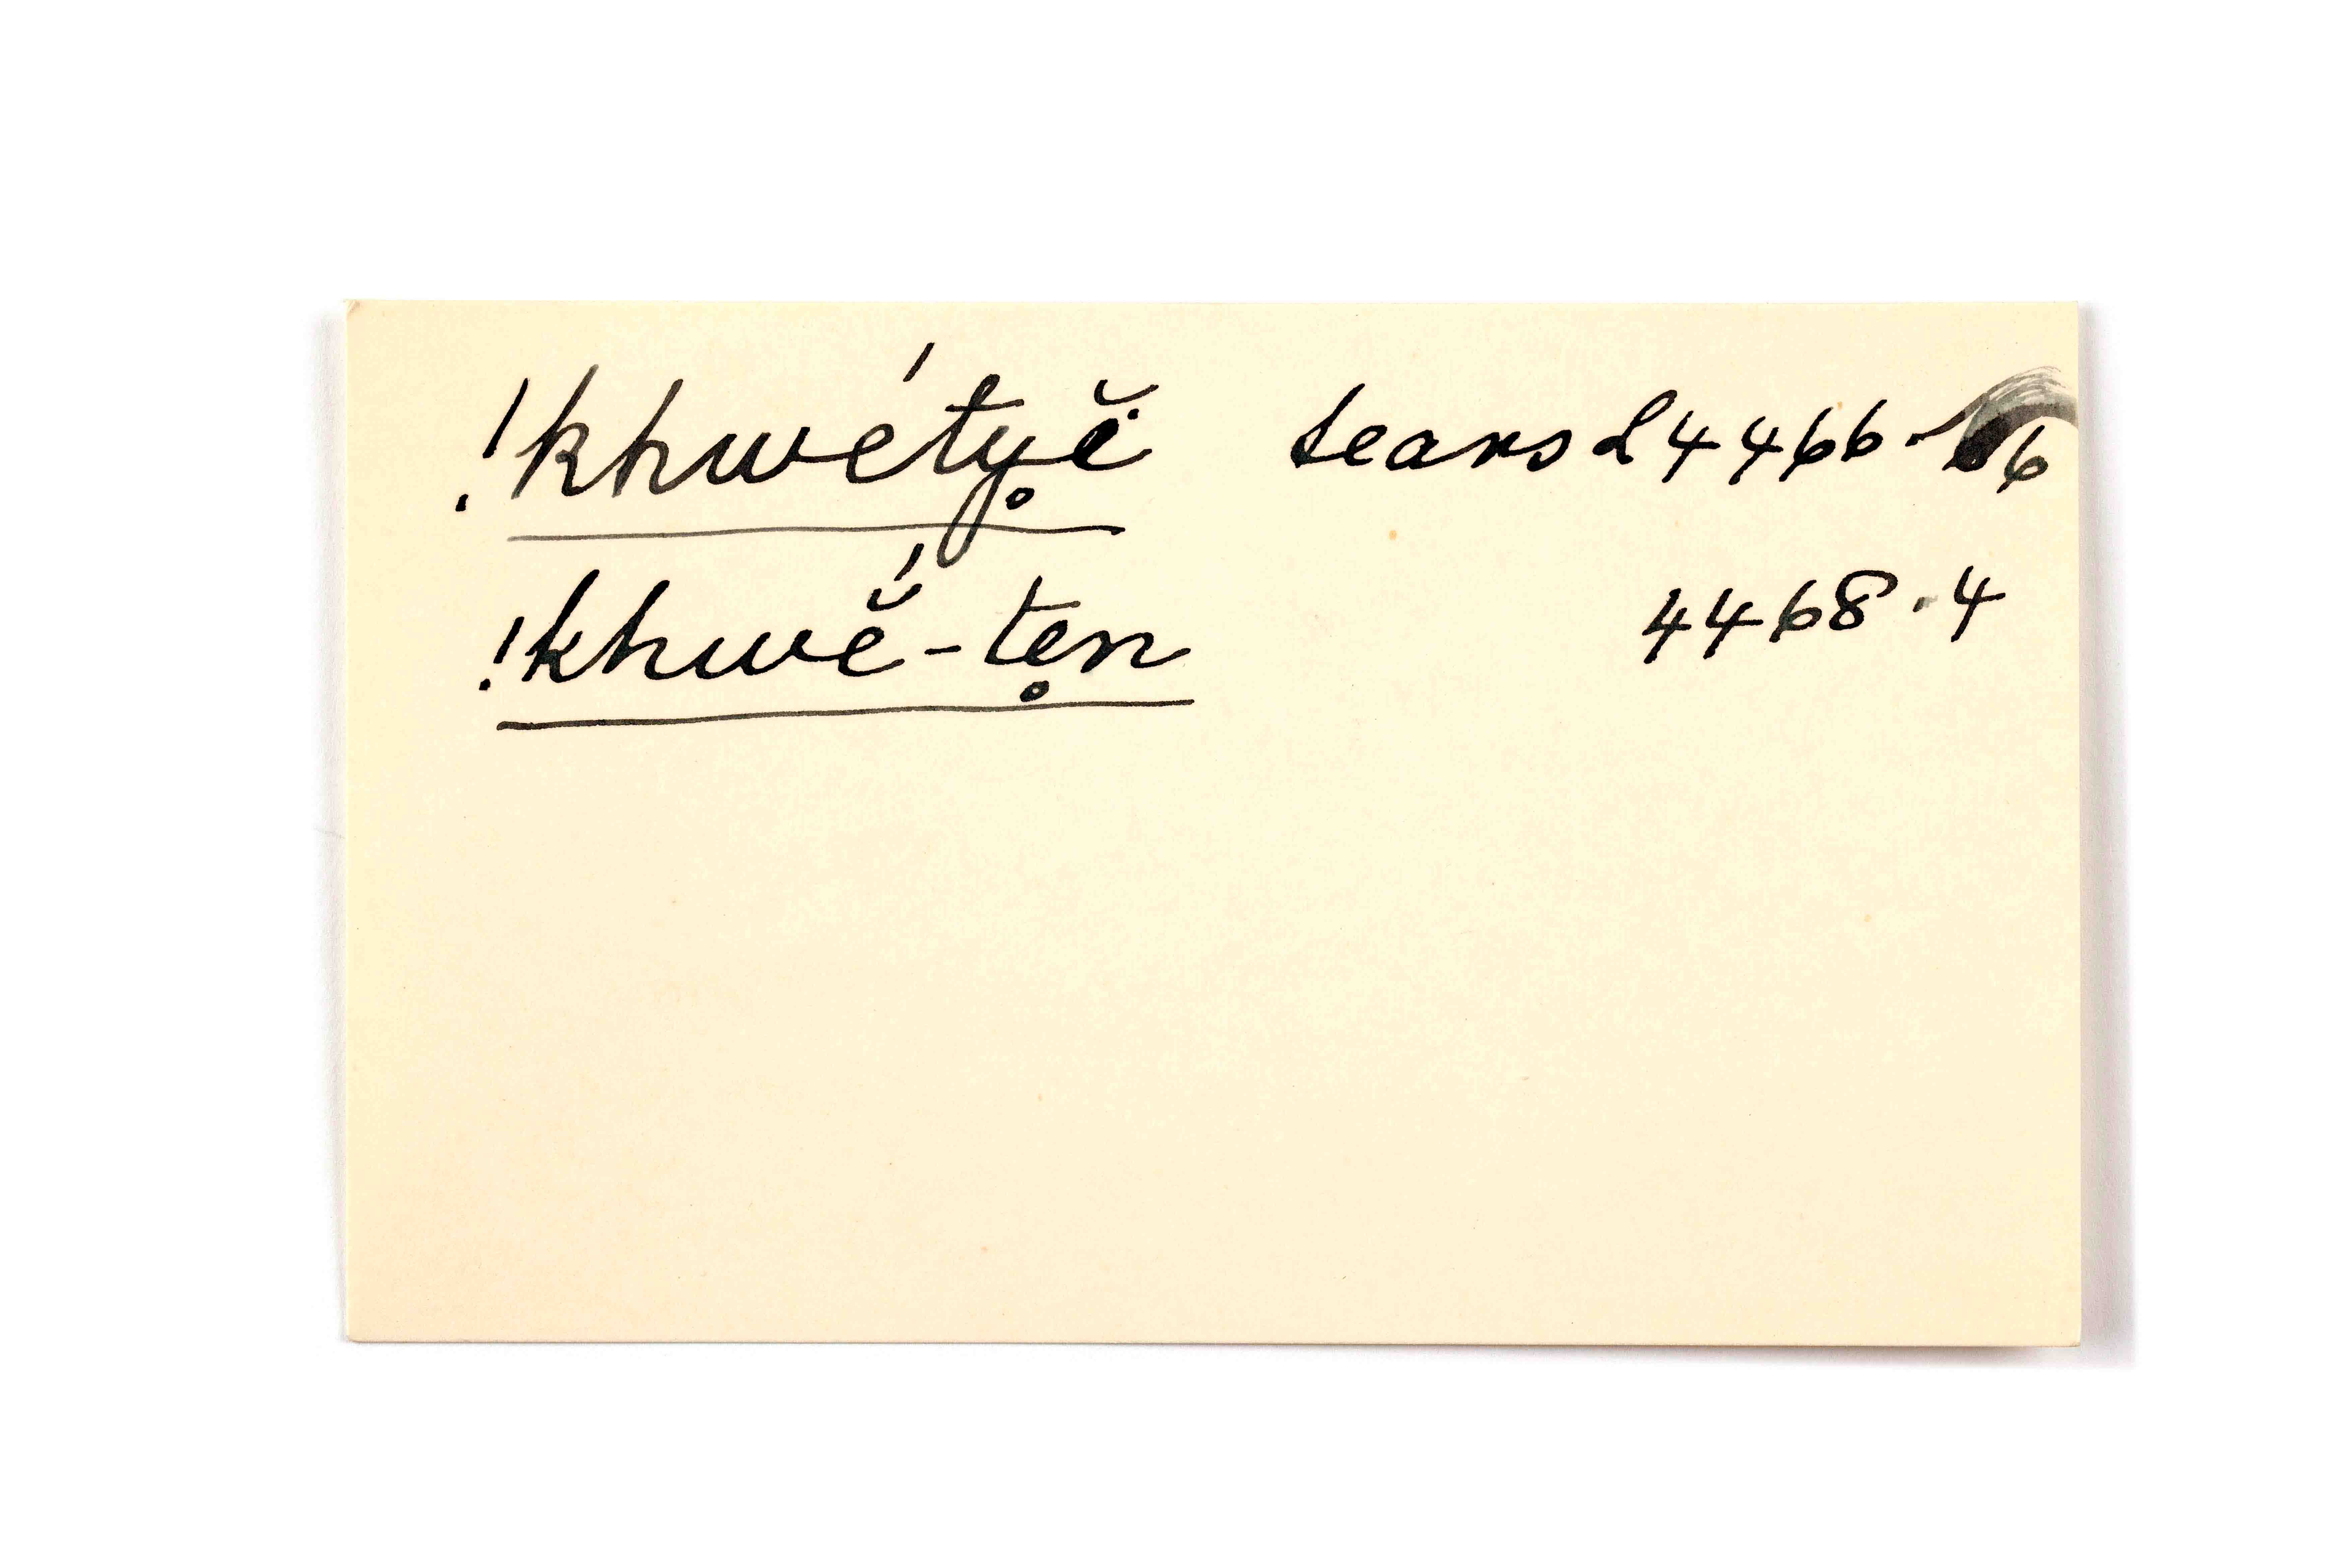 !khwétyĕ̥ tears L4466·6
!khwĕ́-te̥n 4468·4